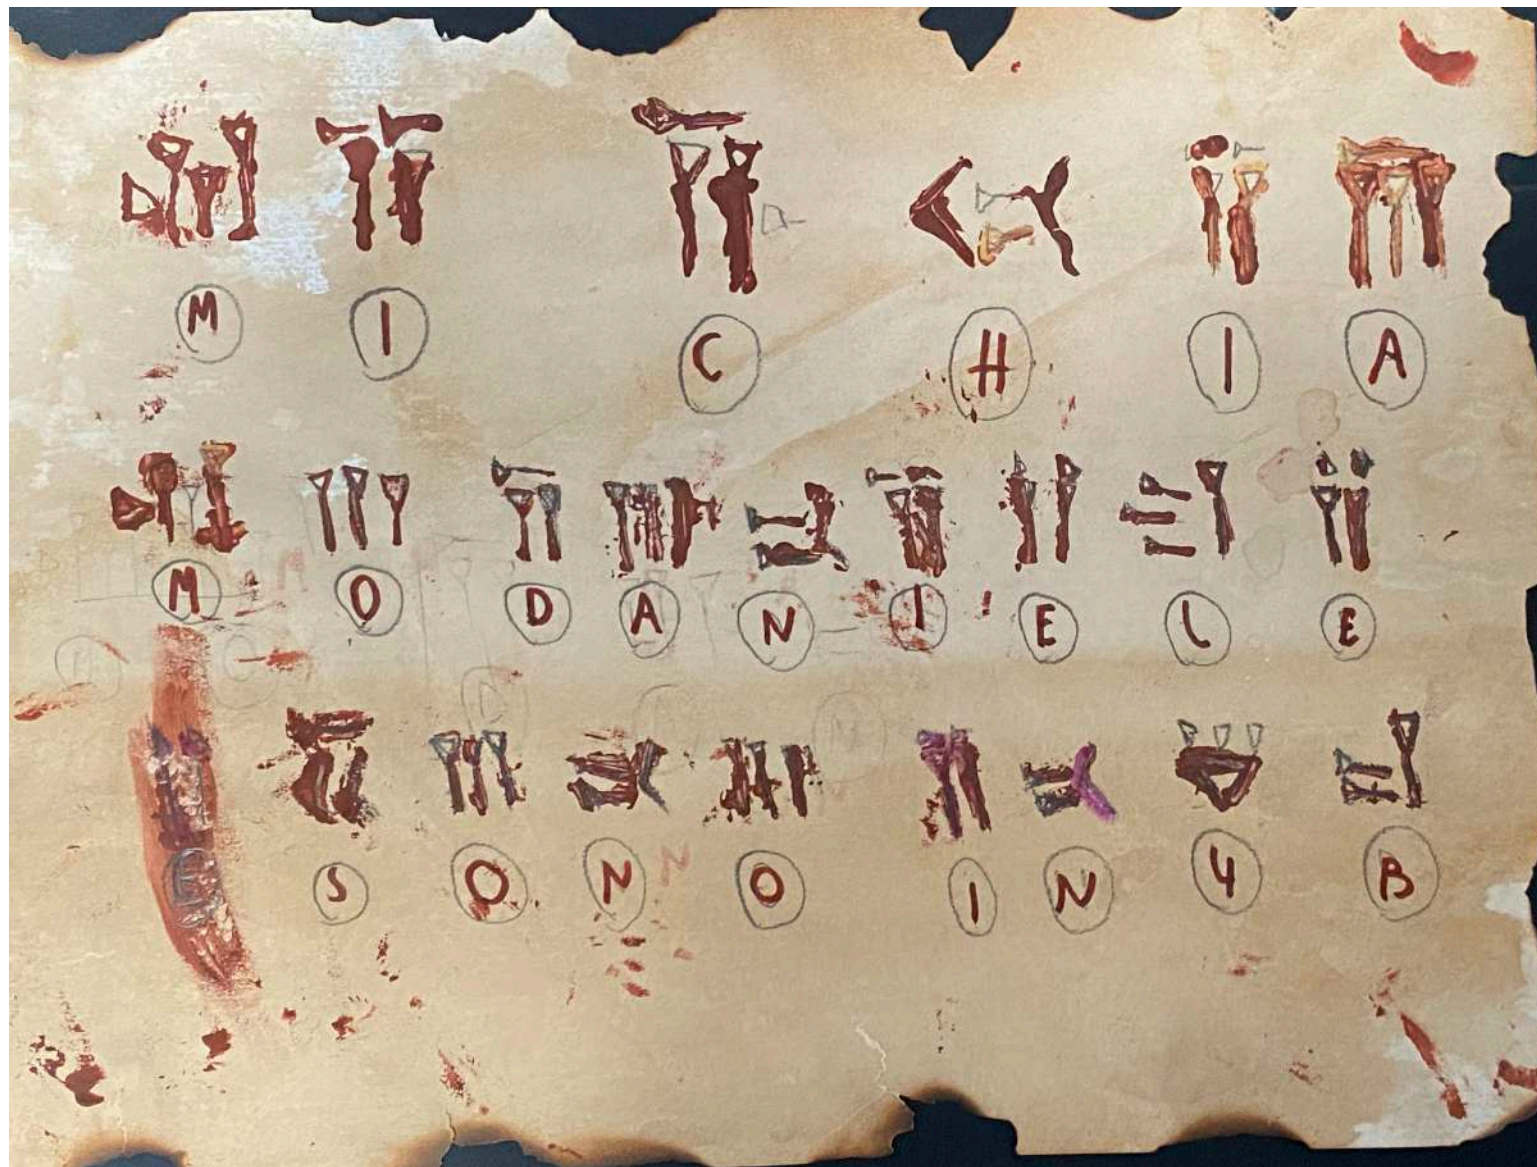 M I C H I A
M O D A N I E L E
E S O N O I N 4 B